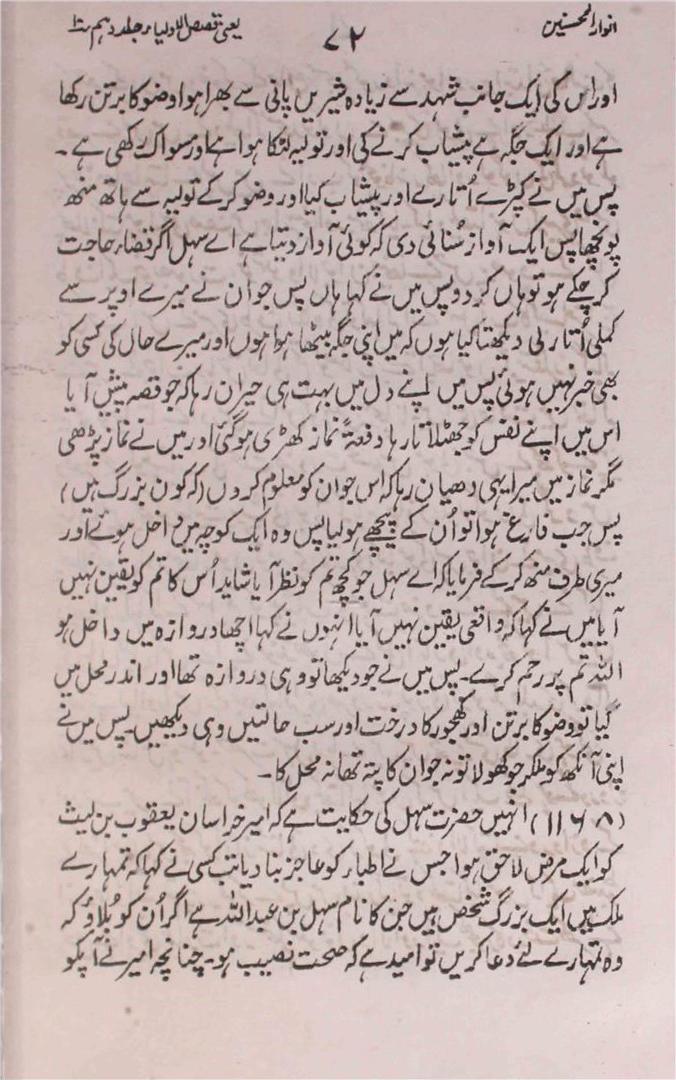 انوار المحسنین
۷۲
یعنی قصص الاولیاء جلد دہم
اور اس کی ایک جانب شہد سے زیادہ شیریں پانی سے بھرا ہوا وضو کا برتن رکھا
ہے اور ایک جگہ ہے پیشاب کرنے کی اور تولیہ لٹکا ہوا ہے اور مسواک رکھی ہے۔
پس میں نے کپڑے اُتارے اور پیشاب کیا اور وضو کرکے تولیہ سے ہاتھ منھ
پونچھا پس ایک آواز سُنائی دی کہ کوئی آواز دیتا ہے اے سہل اگر قضاء حاجت
کر چکے ہو تو ہاں کر دو پس میں نے کہا ہاں پس جوان نے میرے اوپر سے
کملی اُتار لی دیکھتا کیا ہوں کہ میں اپنی جگہ بیٹھا ہوا ہوں اور میرے حال کی کسی کو
بھی خبر نہیں ہوئی پس میں اپنے دل میں بہت ہی حیران رہا کہ جو قصہ پیش آیا
اس میں اپنے نفس کو جھٹلاتا رہا دفعۃً نماز کھڑی ہوگئی اور میں نے نماز پڑھی
مگر نماز میں میرا یہی دھیان رہا کہ اس جوان کو معلوم کروں (کہ کون بزرگ ہیں)
پس جب فارغ ہوا تو اُن کے پیچھے ہو لیا پس وہ ایک کوچہ میں داخل ہوئے اور
میری طرف منھ کرکے فرمایا کہ اے سہل جو کچھ تم کو نظر آیا شاید اُس کا تم کو یقین نہیں
آیا میں نے کہا کہ واقعی یقین نہیں آیا انہوں نے کہا اچھا دروازہ میں داخل ہو
اللہ تم پر رحم کرے۔ پس میں نے جو دیکھا تو وہی دروازہ تھا اور اندر محل میں
گیا تو وضو کا برتن اور کھجور کا درخت اور سب حالتیں وہی دیکھیں۔ پس میں نے
اپنی آنکھ کو ملکر جو کھولا تو نہ جوان کا پتہ تھا نہ محل کا۔
(۱۱۶۸) انہیں حضرت سہل کی حکایت ہے کہ امیر خراسان یعقوب بن لیث
کو ایک مرض لاحق ہوا جس نے اطباء کو عاجز بنا دیا تب کسی نے کہا کہ تمہارے
ملک میں ایک بزرگ شخص ہیں جن کا نام سہل بن عبداللہ ہے اگر اُن کو بُلاؤ کہ
وہ تمہارے لئے دعا کریں تو امید ہے کہ صحت نصیب ہو۔ چنانچہ امیر نے آپکو